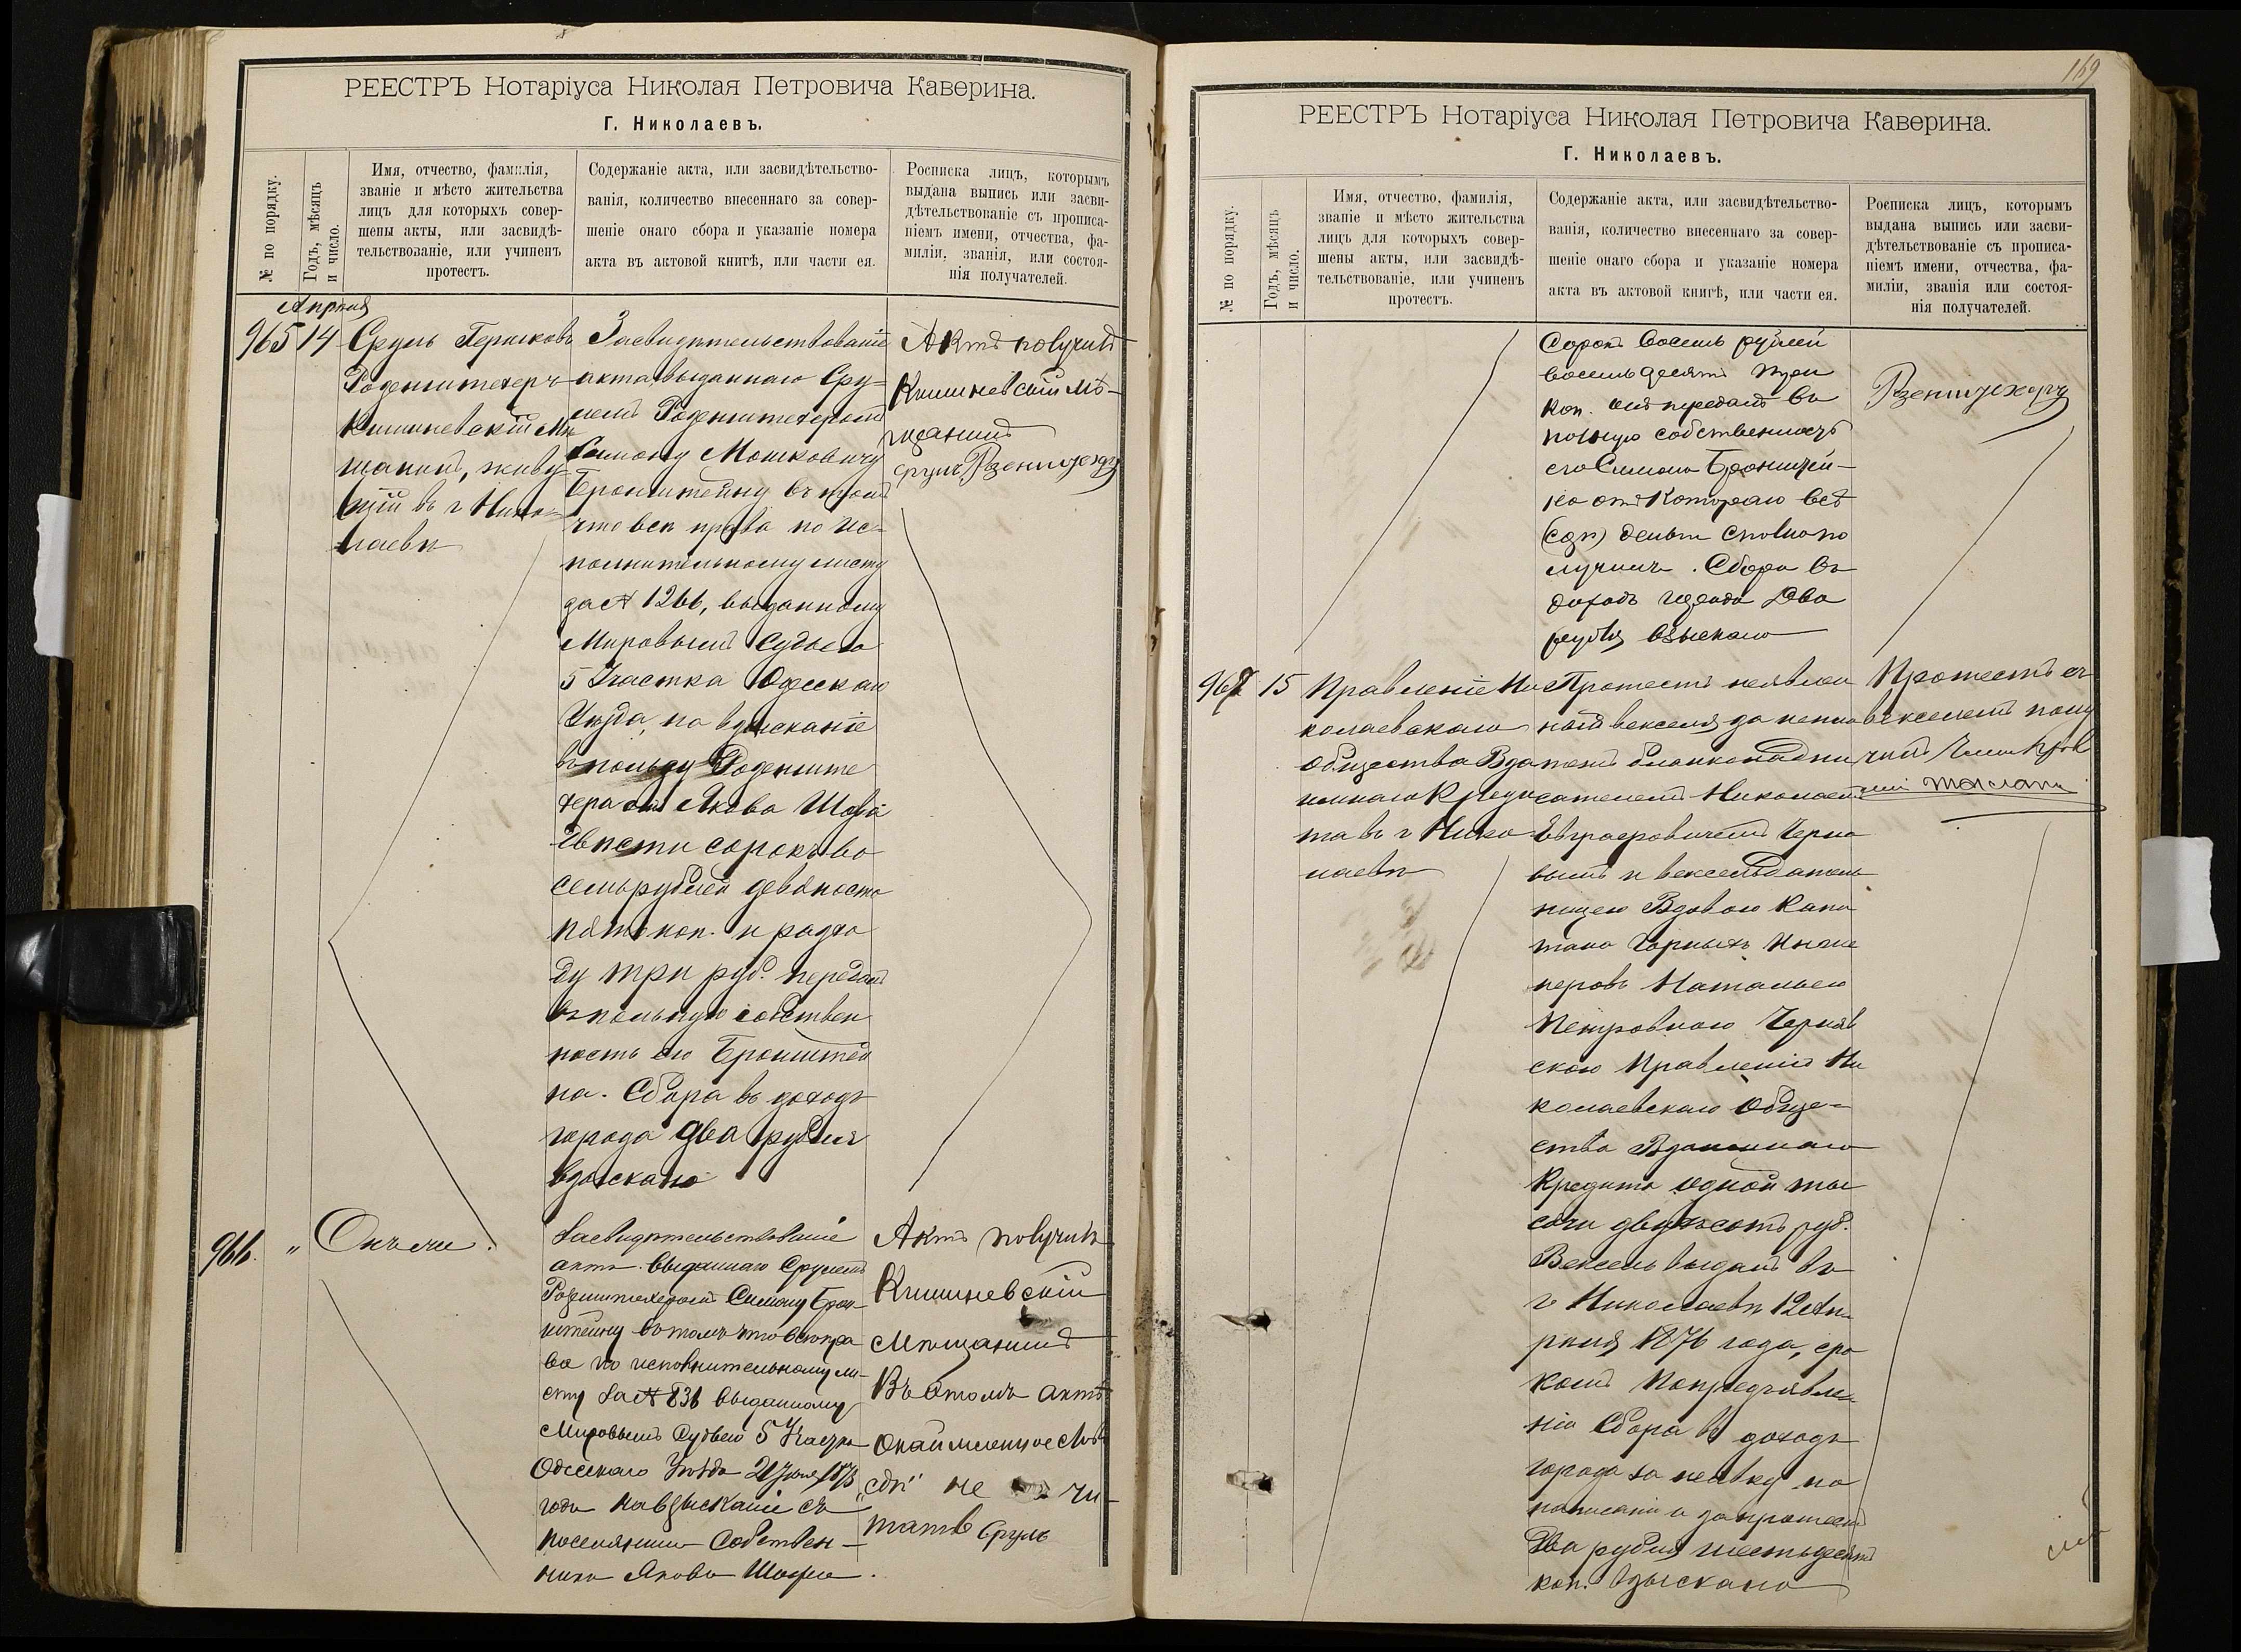 РЕЕСТРЪ Нотаріуса Николая Петровича Каверина.
Г. Николаевъ.
№ по порядку.
Годъ, мѣсяцъ
и число.
Имя, отчество, фамилія,
званіе и мѣсто жительства
лицъ для которыхъ совер-
шены акты, или засвидѣ-
тельствованіе, или учиненъ
протестъ.
Содержаніе акта, или засвидѣтельство-
ванія, количество внесеннаго за совер-
шеніе онаго сбора и указаніе номера
акта въ актовой книгѣ, или части ея.
Росписка лицъ, которымъ
выдана выпись или засви-
дѣтельствованіе съ прописа-
ніемъ имени, отчества, фа-
миліи, званія, или состоя-
нія получателей.
Апрѣля
965 14
Сруль Гершковъ
Кишиневскій мѣ
щанинъ, живу
щій въ г Нико=
лаевѣ
Засвидѣтельствованіе
акта выданнаго Сру=
лемъ
Симону Мошковичу
Бронштейну въ томъ
что всѣ права по ис=
полнительному листу
за № 1266, выданному
Мировымъ Судьею
5 Участка Одесскаго
Уѣзда, на взысканіе
въ пользу Розенште
хера отъ Якова
двѣсти сорокъ во
семь рублей девяносто
пять коп. и расхо
ду три руб. передалъ
въ полную собствен
ность его Бронштей
на. Сбора въ доходъ
города два рубля
взыскано
Актъ получилъ
Кишиневскій мѣ-
щанинъ
Сруль
966. "
Онъ же.
Засвидѣтельствованіе
акта выданнаго Срулемъ
Симону Брон-
штейну въ томъ что всѣ пра
ва по исполнительному ли-
сту за № 836 выданному
Мировымъ Судьею 5 Участка
Одесскаго Уѣзда
года на взысканіе съ
поселянина Собствен-
ника Якова
Актъ получилъ
Кишиневскій
Мѣщанинъ
Въ этомъ актѣ
окаймленное
„сдѣ" не чи-
тать Сруль
169
РЕЕСТРЪ Нотаріуса Николая Петровича Каверина.
Г. Николаевъ.
№ по порядку.
Годъ, мѣсяцъ
и число.
Имя, отчество, фамилія,
званіе и мѣсто жительства
лицъ для которыхъ совер-
шены акты, или засвидѣ-
тельствованіе, или учиненъ
протестъ.
Содержаніе акта, или засвидѣтельство-
ванія, количество внесеннаго за совер-
шеніе онаго сбора и указаніе номера
акта въ актовой книгѣ, или части ея.
Росписка лицъ, которымъ
выдана выпись или засви-
дѣтельствованіе съ прописа-
ніемъ имени, отчества, фа-
миліи, званія или состоя-
нія получателей.
Сорокъ восемь рублей
восемьдесятъ три
коп. онъ передалъ въ
полную собственность
его Симона Бронштей-
на отъ Котораго всѣ
(сдѣ) деньги сполна по
лучилъ. Сбора въ
доходъ города Два
рубля взыскано
967 15
Правленіе Ни
колаевскаго
Общества Вза
имнаго Креди
та въ г Нико
лаевѣ
Протестъ
векселя за
Николаемъ
и векселедатель
ницею Вдовою Капи
тана Горныхъ Инже
неровъ Натальею
Петровною Черняв
скою Правленію Ни
колаевскаго Обще=
ства Взаимнаго
Кредита одной ты
сячи двухсотъ руб.
Вексель выданъ въ
г Николаевѣ 12 Ап
рѣля 1876 года, сро
комъ по предъявле
нію Сбора въ доходъ
города за неявку по
написанію и за протестъ
Два рубля шестьдесятъ
коп. взыскано
Протестъ съ
векселемъ полу
чилъ